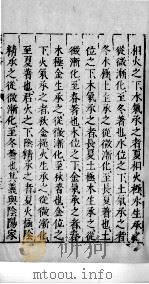 相火之下水氣承之者夏相火極水生承之
從微漸化至冬著也水位之下土氣承之者
冬水極土生承之從微漸化至長夏著也土
位之下木氣承之者長夏土極木生承之從
微漸化至春著也木位之下金氣承之者春
木極金生承之從微漸化至秋著也金位之
下火氣承之者秋金極火生承之從微漸化
至夏著也君火之下陰精承之者夏火極陰
精承之從微漸化至冬著也其義與陰陽家
mtoou.info